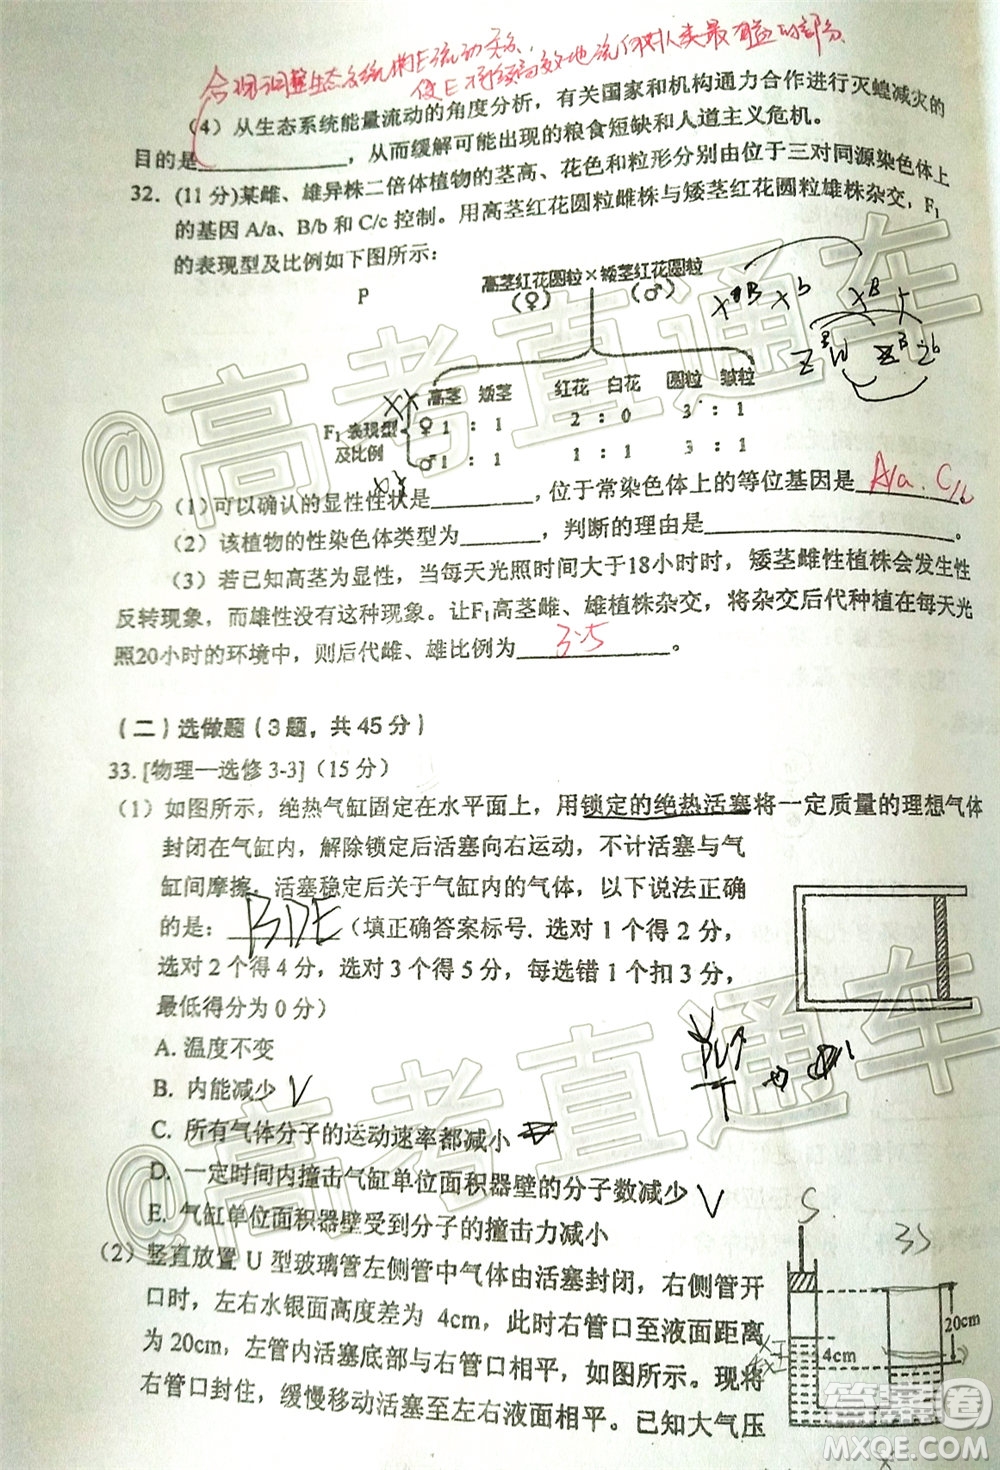 合理调整生态系统的E流动关系,
使E持续高效地流向对人类最有益的部分
(4) 从生态系统能量流动的角度分析，有关国家和机构通力合作进行灭蝗减灾的
目的是____________，从而缓解可能出现的粮食短缺和人道主义危机。
32. (11 分)某雌、雄异株二倍体植物的茎高、花色和粒形分别由位于三对同源染色体上
的基因 A/a、B/b 和 C/c 控制。用高茎红花圆粒雌株与矮茎红花圆粒雄株杂交，F1
的表现型及比例如下图所示：
P 高茎红花圆粒×矮茎红花圆粒
(♀) (♂)
高茎 矮茎 红花 白花 圆粒 皱粒
F1 表现型及比例
♀ 1 : 1 2 : 0 3 : 1
♂ 1 : 1 1 : 1 3 : 1
(1) 可以确认的显性性状是________，位于常染色体上的等位基因是 A/a、C/c
(2) 该植物的性染色体类型为______，判断的理由是______________。
(3) 若已知高茎为显性，当每天光照时间大于18小时时，矮茎雌性植株会发生性
反转现象，而雄性没有这种现象。让F1高茎雌、雄植株杂交，将杂交后代种植在每天光
照20小时的环境中，则后代雌、雄比例为 3:5 。
(二) 选做题 (3题，共45分)
33. [物理—选修 3-3] (15 分)
(1) 如图所示，绝热气缸固定在水平面上，用锁定的绝热活塞将一定质量的理想气体
封闭在气缸内，解除锁定后活塞向右运动，不计活塞与气
缸间摩擦。活塞稳定后关于气缸内的气体，以下说法正确
的是: BDE (填正确答案标号. 选对 1 个得 2 分，
选对 2 个得 4 分，选对 3 个得 5 分，每选错 1 个扣 3 分，
最低得分为 0 分)
A. 温度不变
B. 内能减少 √
C. 所有气体分子的运动速率都减小
D. 一定时间内撞击气缸单位面积器壁的分子数减少 √
E. 气缸单位面积器壁受到分子的撞击力减小
(2) 竖直放置 U 型玻璃管左侧管中气体由活塞封闭，右侧管开
口时，左右水银面高度差为 4cm，此时右管口至液面距离
为 20cm，左管内活塞底部与右管口相平，如图所示。现将
右管口封住，缓慢移动活塞至左右液面相平。已知大气压
S 3S
20cm
4cm
@高考直通车
@高考直通车
答案圈
MXQE.COM